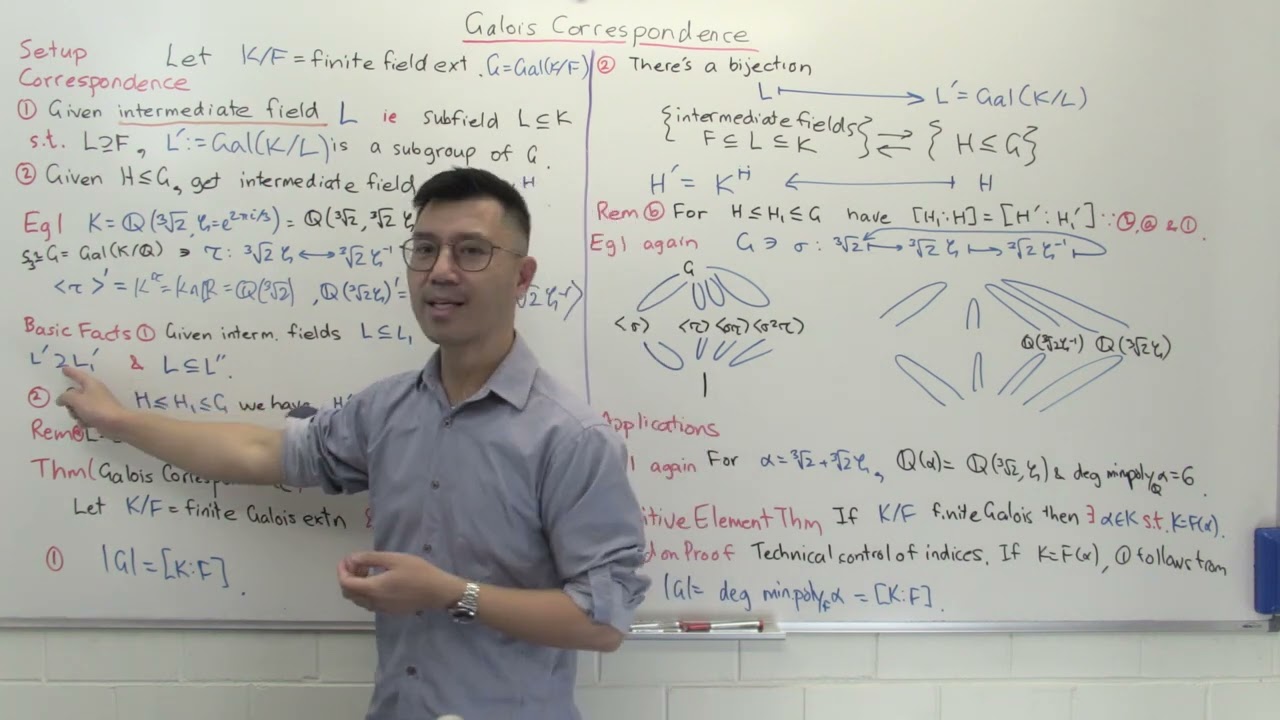 Galois Correspondence
Setup Let K/F = finite field ext. G = Gal(K/F)
Correspondence
① Given intermediate field L ie subfield L ⊆ K
s.t. L ⊇ F, L' := Gal(K/L) is a subgroup of G.
② Given H ≤ G, get intermediate field H
Eg1 K = ℚ(∛2, ζ = e^{2πi/3}) = ℚ(∛2, ∛2 ζ
S₃ ≅ G = Gal(K/ℚ) ∋ τ : ∛2 ζ ⟷ ∛2 ζ⁻¹
<τ>' = K^τ = K∩ℝ = ℚ(∛2), ℚ(∛2 ζ)' = √2 ζ⁻¹>
Basic Facts ① Given interm. fields L ⊆ L₁
L' ⊇ L₁' & L ⊆ L''.
② H ≤ H₁ ≤ G we have H'
Rem
Thm (Galois
Let K/F = finite Galois extn
① |G| = [K:F].
② There's a bijection
L ⟼ L' = Gal(K/L)
{intermediate fields F ⊆ L ⊆ K} ⇄ {H ≤ G}
H' = K^H ⟻ H
Rem ⑥ For H ≤ H₁ ≤ G have [H₁:H] = [H':H₁']
Eg1 again G ∋ σ : ∛2 ⟼ ∛2 ζ ⟼ ∛2 ζ⁻¹
G
<σ> <τ> <στ> <σ²τ>
1
ℚ(∛2ζ⁻¹) ℚ(∛2ζ)
pplications
1 again For α = ∛2 + ∛2 ζ, ℚ(α) = ℚ(∛2, ζ) & deg minpoly_ℚ α = 6.
itive Element Thm If K/F finite Galois then ∃ α∈K s.t. K=F(α).
d on Proof Technical control of indices. If K=F(α), ① follows from
|G| = deg minpoly_F α = [K:F].